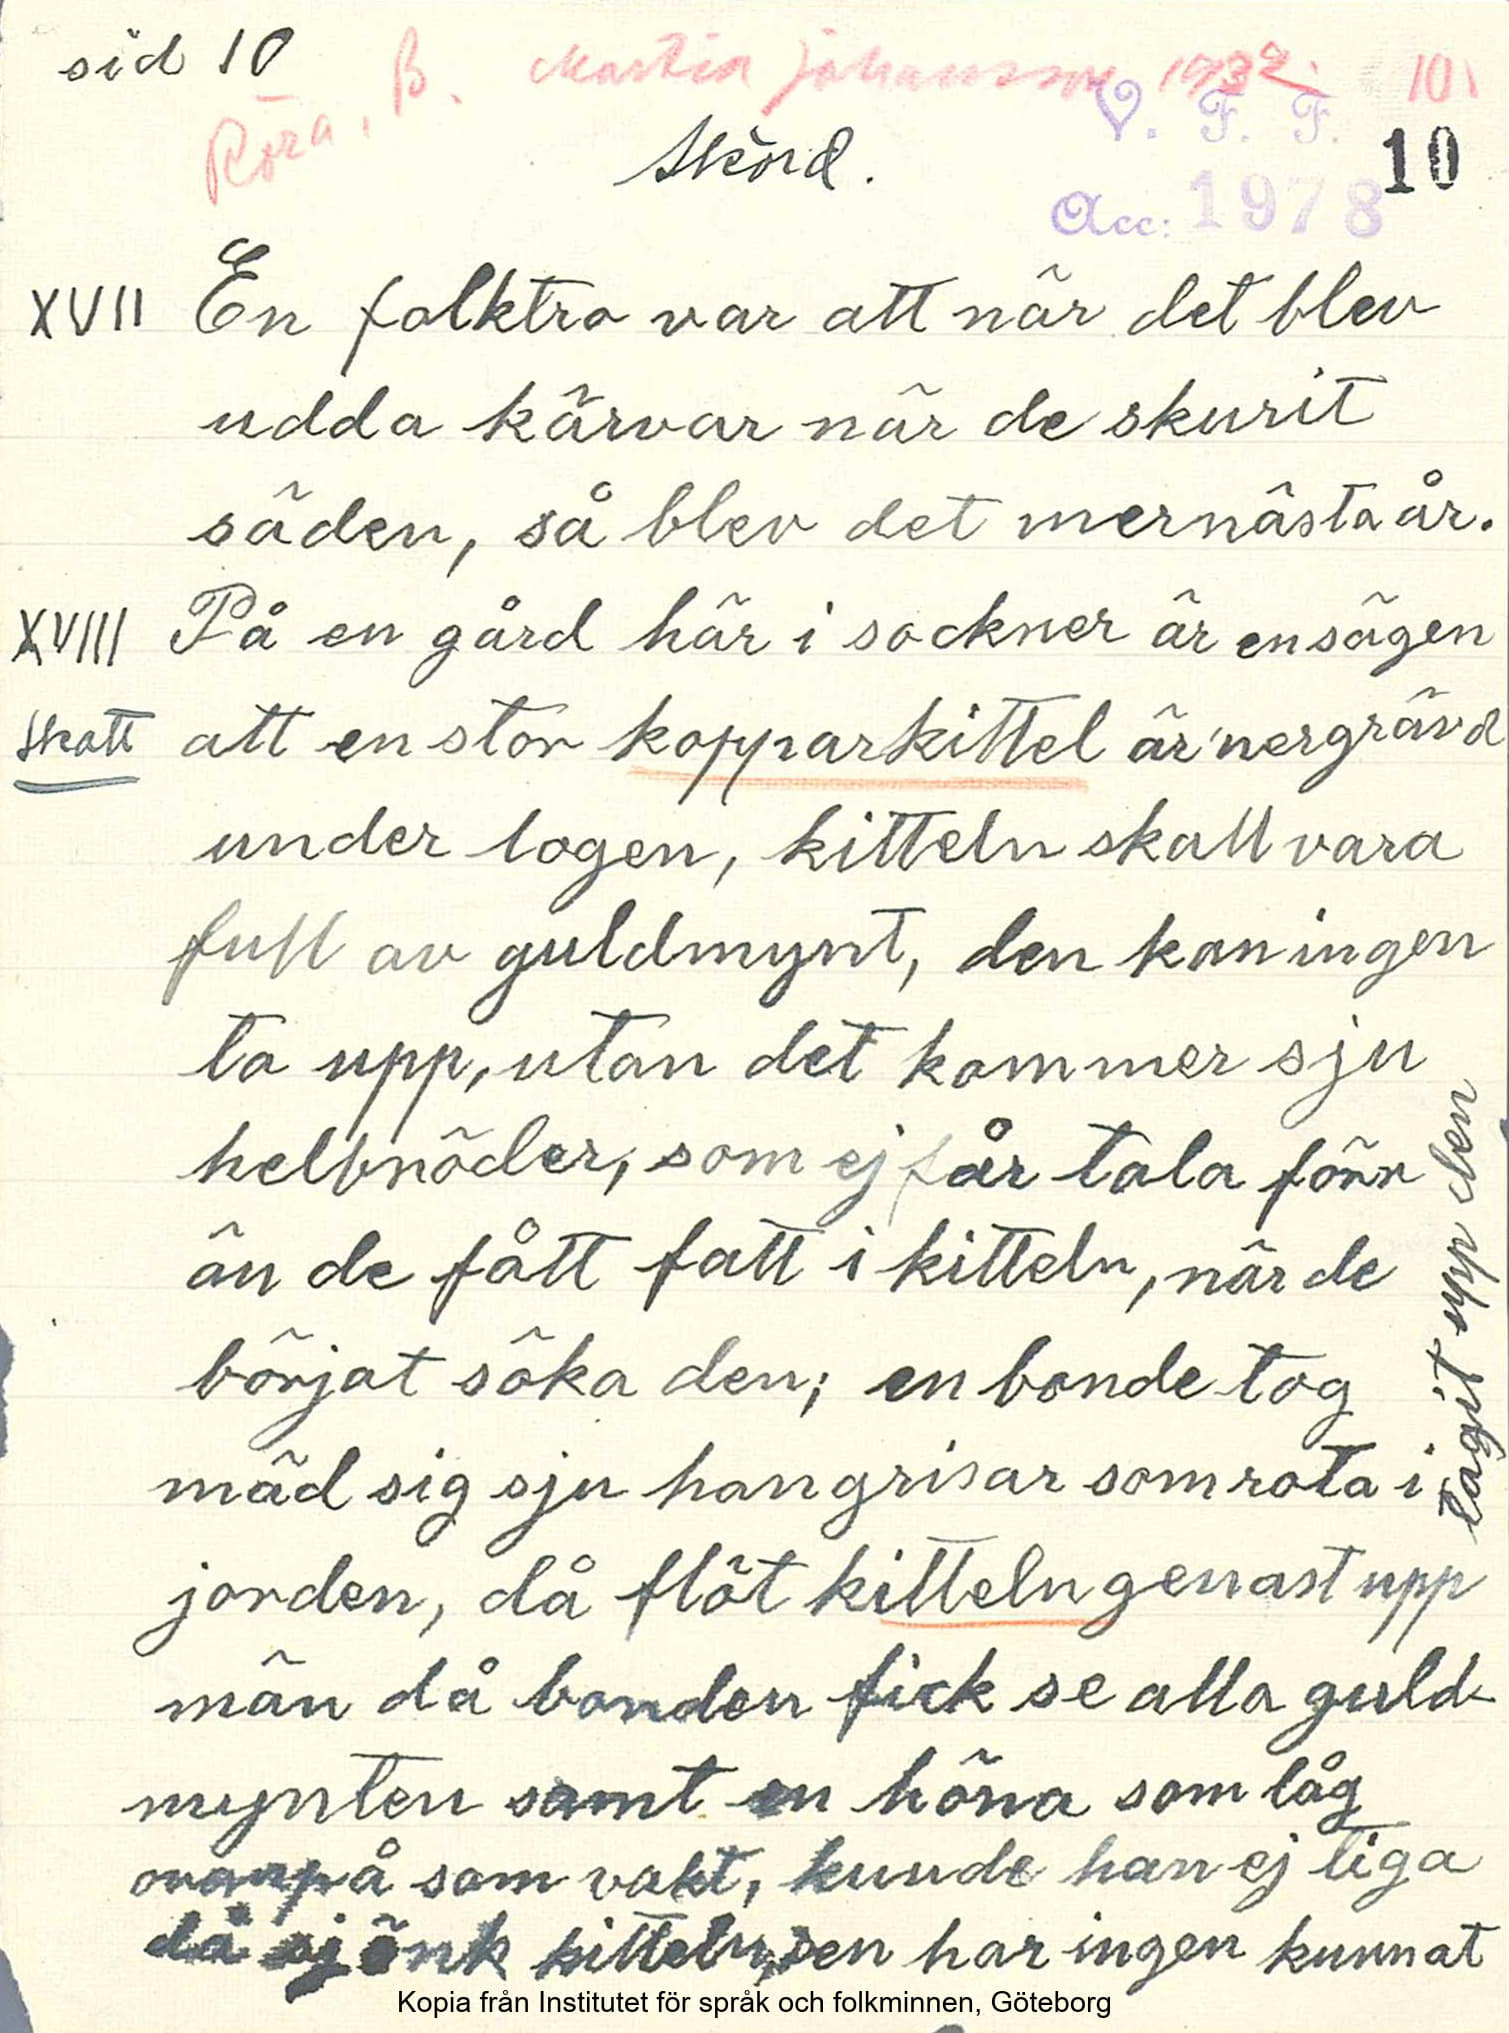 sid 10
Röra, B. Martin Johansson 1932. 10
V. F. F.
Skörd.
10
Acc: 1978
XVII En folktro var att när det blev
udda kärvar när de skurit
säden, så blev det mer nästa år.
XVIII På en gård här i sockner är en sägen
Skatt att en stor kopparkittel är nergrävd
under logen, kitteln skall vara
full av guldmynt, den kan ingen
ta upp, utan det kommer sju
helbröder, som ej får tala förr
än de fått fatt i kitteln, när de
börjat söka den; en bonde tog
mäd sig sju hangrisar som rota i
jorden, då flöt kitteln genast upp
män då bonden fick se alla guld-
mynten samt en höna som låg
ovanpå som vakt, kunde han ej tiga
då sjönk kitteln, sen har ingen kunnat
tagit upp den
Kopia från Institutet för språk och folkminnen, Göteborg